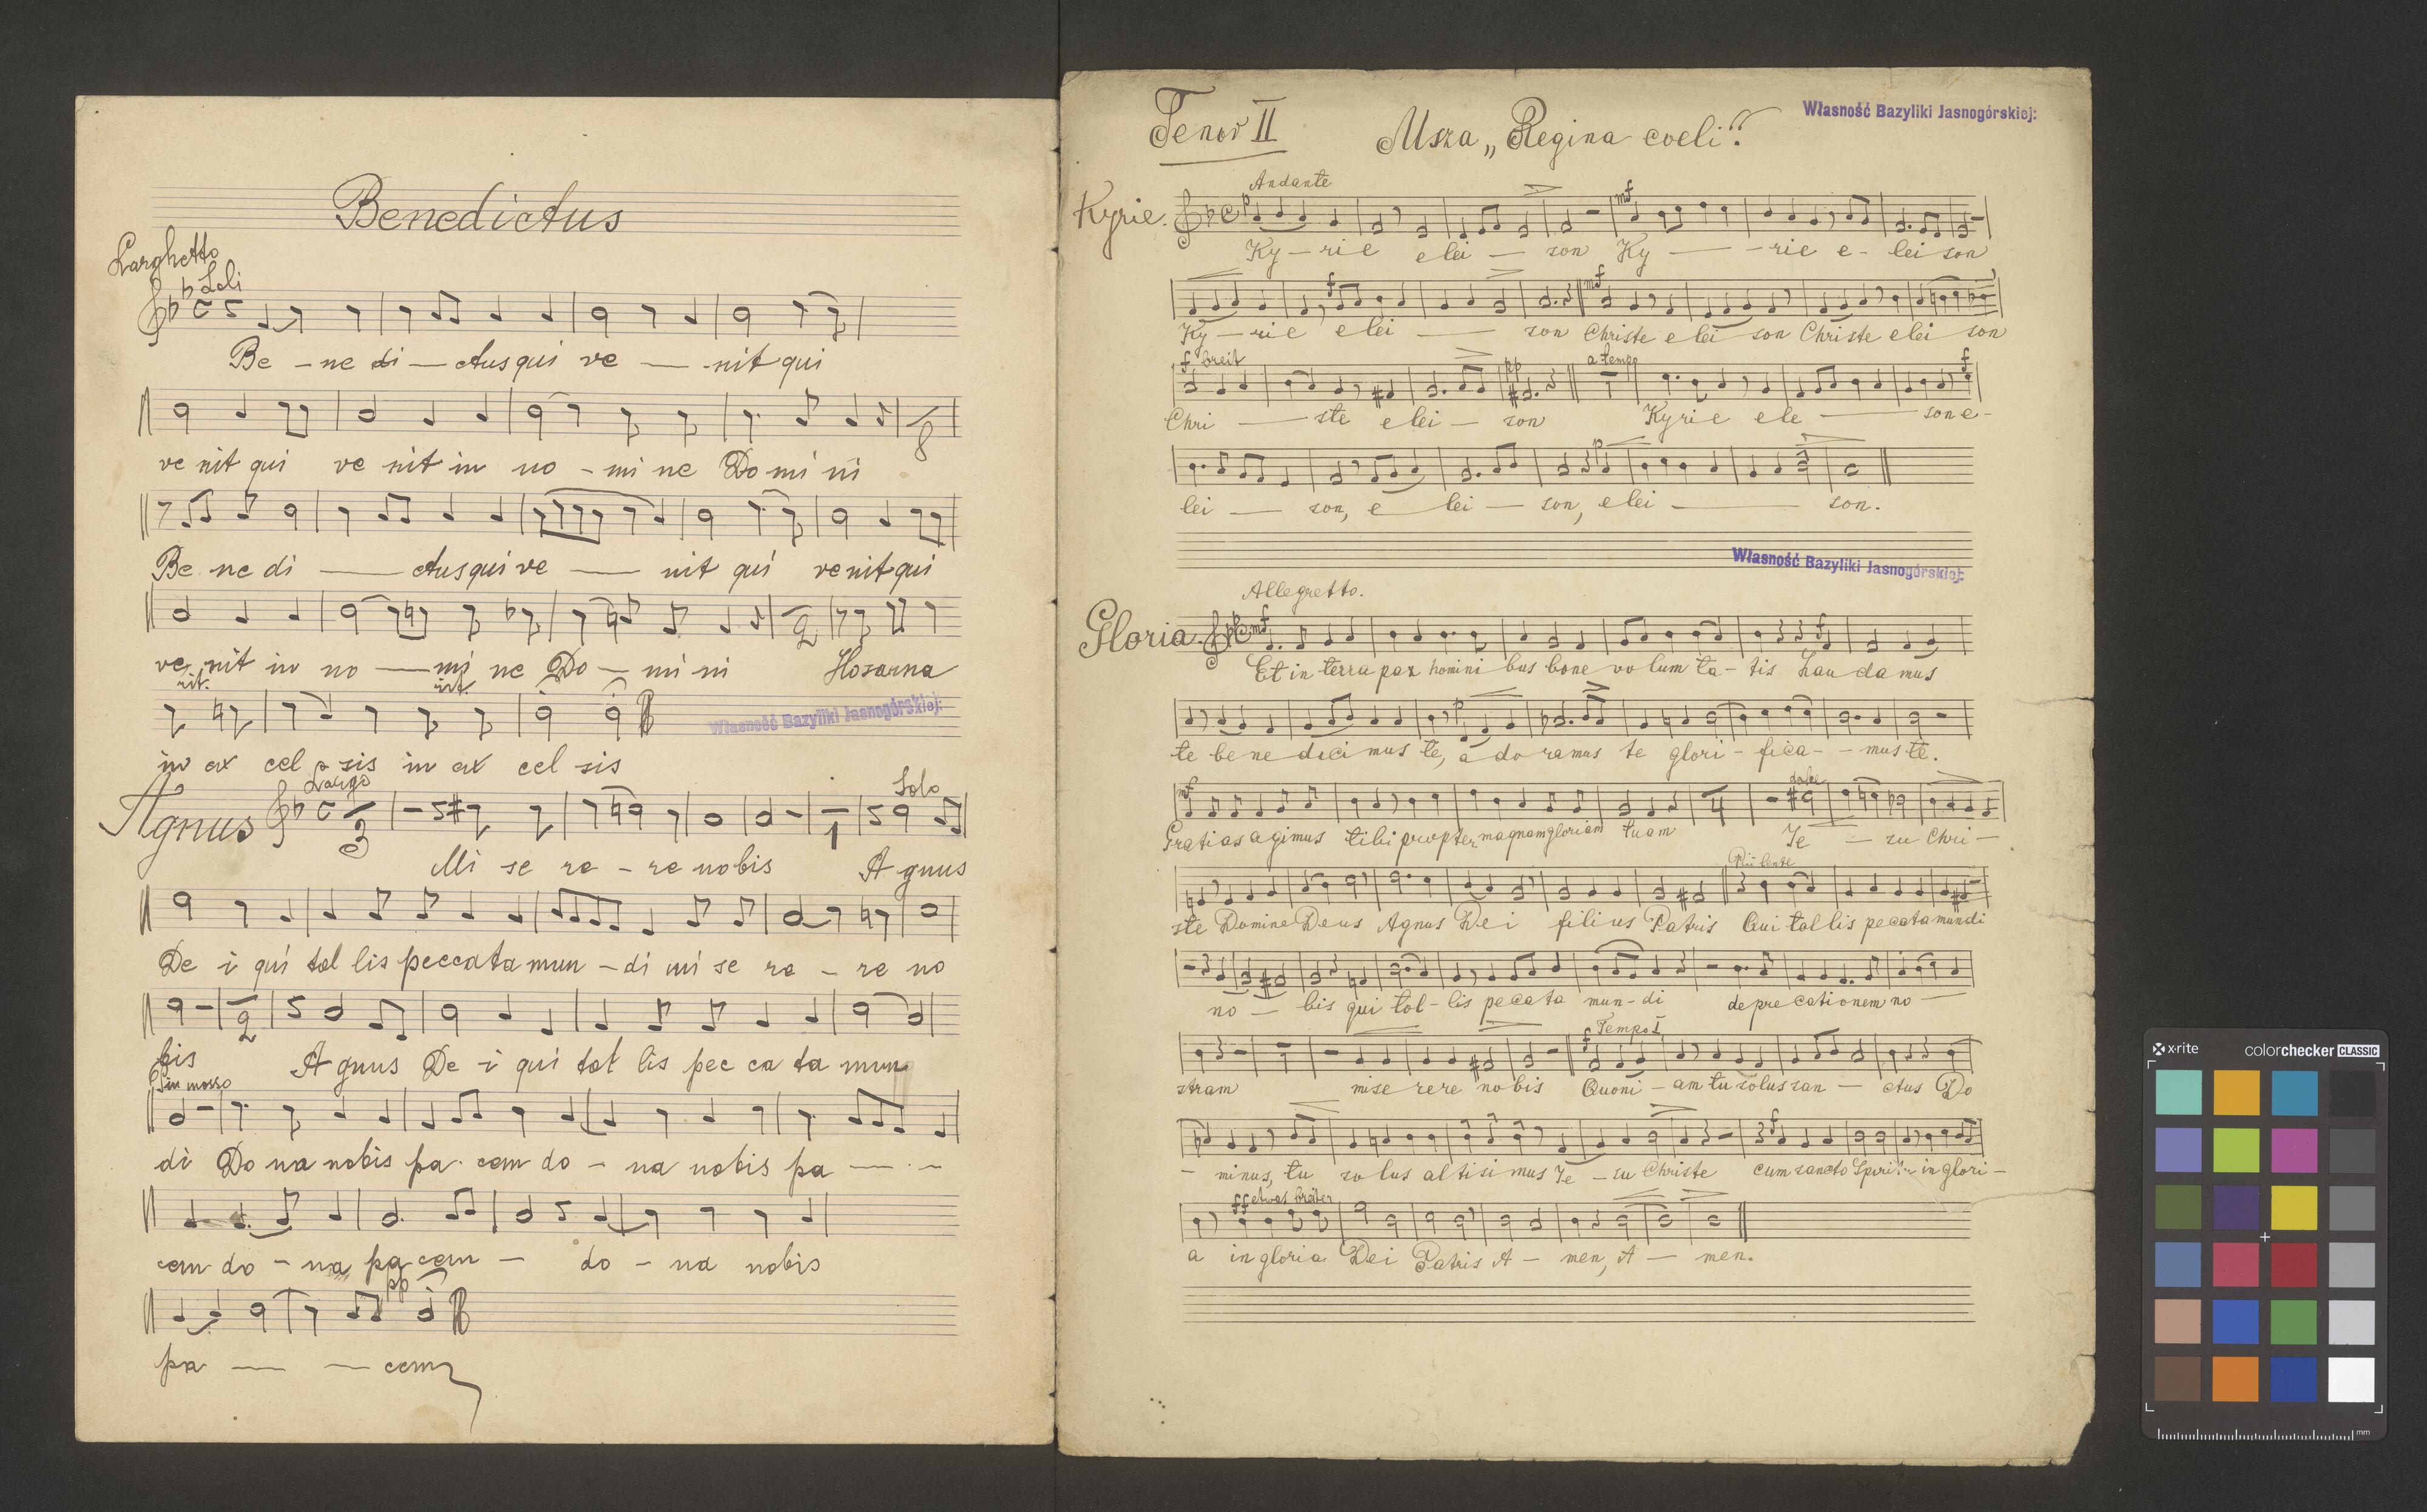 Benedictus
Larghetto
Soli
Be - ne di - ctus qui ve - nit qui
ve nit qui ve nit in no - mi ne Do mi ni
Be ne di - ctus qui ve - nit qui ve nit qui
ve nit in no - mi ne Do - mi ni Hosanna
rit. rit
in ex cel - sis in ex cel sis
Własność Bazyliki Jasnogórskiej:
Largo Solo
Agnus
3 1
Mi se re - re nobis A gnus
De i qui tol lis peccata mun - di mi se re - re no
2
bis A gnus De i qui tol lis pec ca ta mun
Piu mosso
di Do na nobis pa cem do - na nobis pa -
cem do - na pa cem - do - na nobis
pp
pa - - cem
Tenor II
Msza „Regina coeli"
Własność Bazyliki Jasnogórskiej:
Andante
p mf
Kyrie.
Ky - rie elei - son Ky - rie e - lei son
f mf
Ky - rie elei - son Christe elei son Christe elei son
f breit pp a tempo f
Chri - ste elei - son Kyrie ele - son e -
p
lei - son, e lei - son, elei - son.
Własność Bazyliki Jasnogórskiej:
Allegretto.
Gloria. mf f
Et in terra pax homini bus bone volum ta - tis Lau da mus
p
te be ne dici mus te, a do ramus te glori - fica - - mus te.
mf 4 dolce
Gratias agimus tibi propter magnam gloriam tuam Je - su Chri -
Più lento
ste Domine Deus Agnus Dei filius Patris Qui tollis pecata mundi
no - bis qui tol - lis pecata mun - di deprecationem no -
f Tempo I
stram mise rere nobis Quoni - am tu solus san - ctus Do
f
- minus, tu solus altisi mus Je - su Christe cum sancto Spiritu in glori -
ff etwas breiter
a in gloria Dei Patris A - men, A - men.
x-rite colorchecker CLASSIC
mm